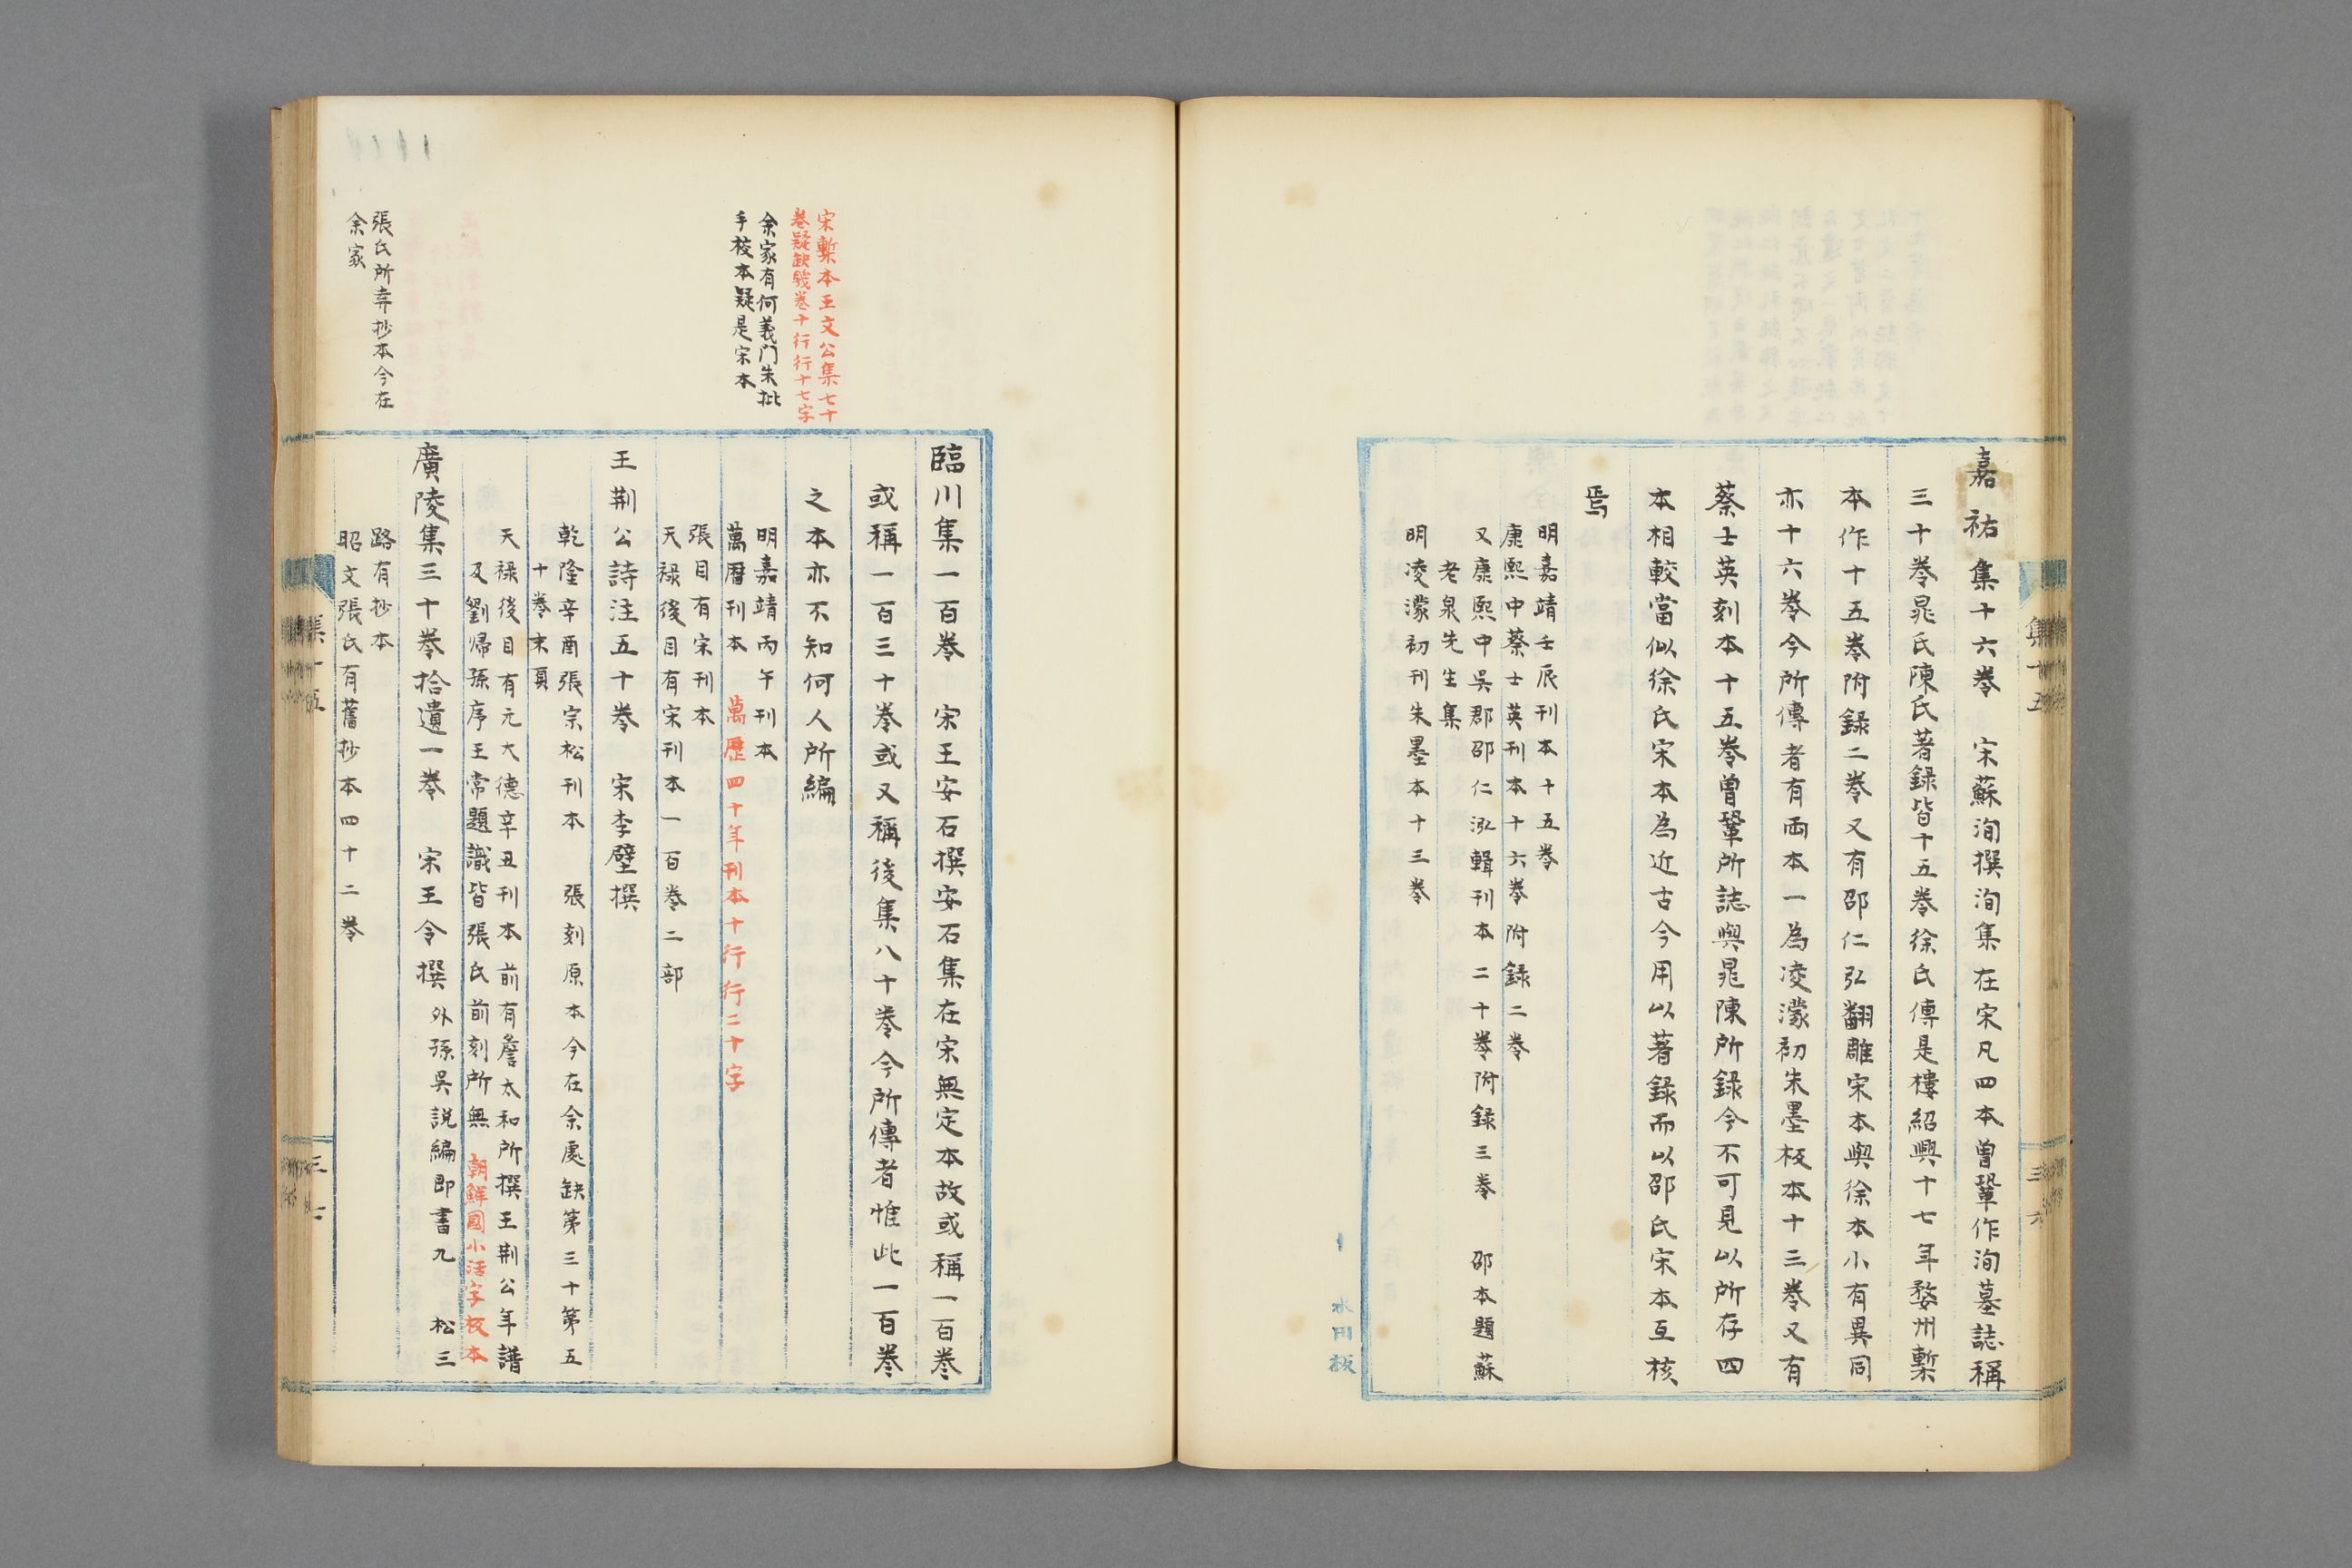 嘉祐集十六巻　宋蘇洵撰洵集在宋凡四本曽鞏作洵墓誌稱
三十巻晁氏陳氏著録皆十五巻徐氏傳是樓紹興十七年婺州槧
本作十五巻附録二巻又有邵仁弘翻雕宋本與徐本小有異同
亦十六巻今所傳者有両本一為凌濛初朱墨板本十三巻又有
蔡士英刻本十五巻曽鞏所誌與晁陳所録今不可見以所存四
本相較當似徐氏宋本為近古今用以著録而以邵氏宋本互核
焉
明嘉靖壬辰刊本十五巻
康熙中蔡士英刊本十六巻附録二巻
又康熙中吳郡邵仁泓輯刊本二十巻附録三巻　邵本題蘇
老泉先生集
明凌濛初刊朱墨本十三巻
集十五
三六
永田板
宋槧本王文公集七十
巻疑缺幾巻十行行十七字
余家有何義門朱批
手校本疑是宋本
張氏所弆抄本今在
余家
臨川集一百巻　宋王安石撰安石集在宋無定本故或稱一百巻
或稱一百三十巻或又稱後集八十巻今所傳者惟此一百巻
之本亦不知何人所編
明嘉靖丙午刊本
萬曆刊本　萬歴四十年刊本十行行二十字
張目有宋刊本
天禄後目有宋刊本一百巻二部
王荆公詩注五十巻　宋李壁撰
乾隆辛酉張宗松刊本　張刻原本今在余處缺第三十第五
十巻末頁
天禄後目有元大德辛丑刊本前有詹太和所撰王荆公年譜
及劉帰孫序王常題識皆張氏前刻所無　朝鮮國小活字板本
廣陵集三十巻拾遺一巻　宋王令撰　外孫吳説編即書九　松三
路有抄本
昭文張氏有舊抄本四十二巻
集十五
三七